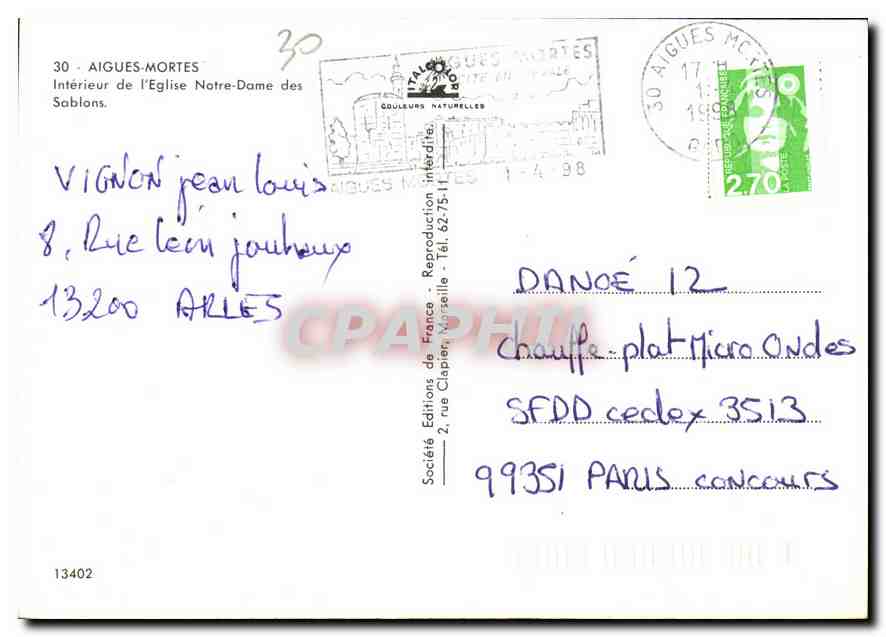 30
30 - AIGUES-MORTES
Intérieur de l'Eglise Notre-Dame des
Sablons.
ITALCOLOR
COULEURS NATURELLES
AIGUES MORTES
AIGUES MORTES 1-4-98
30 AIGUES MORTES
17 H
REPUBLIQUE FRANÇAISE
2,70
LA POSTE
VIGNON jean louis
8, Rue léon jouhaux
13200 ARLES
Société Editions de France - Reproduction interdite.
2, rue Clapier, Marseille - Tél. 62-75-11
DANOÉ 12
Chauffe-plat Micro Ondes
SFDD cedex 3513
99351 PARIS concours
13402
CPAPHIL